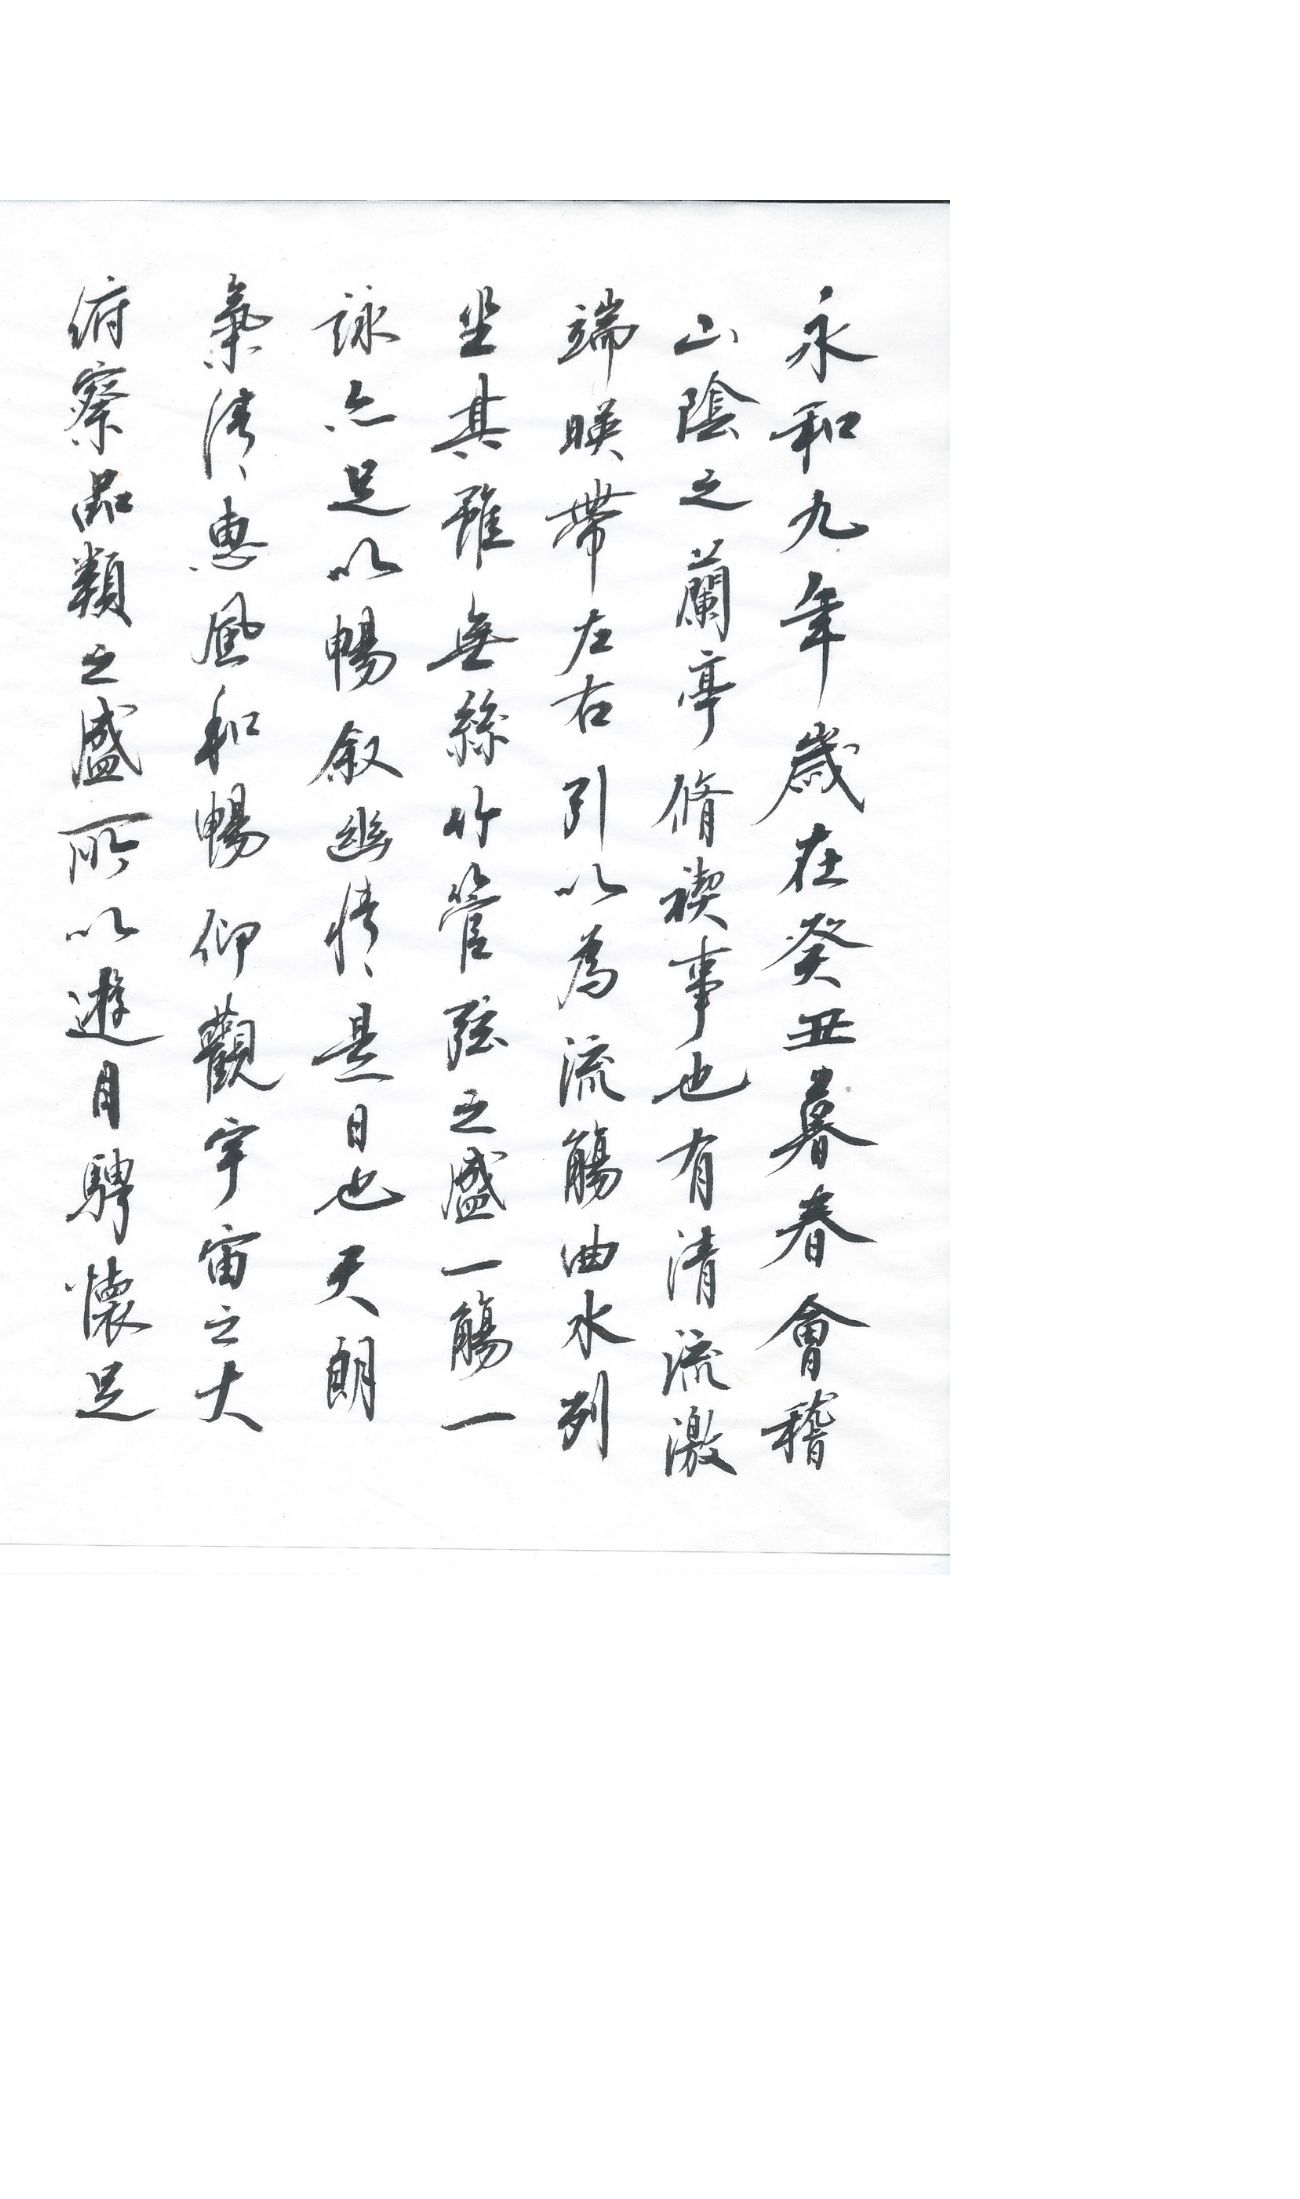 永和九年歲在癸丑暮春會稽
山陰之蘭亭脩禊事也有清流激
端暎帶左右引以為流觴曲水列
坐其雖無絲竹管弦之盛一觴一
詠亦足以暢敘幽情是日也天朗
氣清惠風和暢仰觀宇宙之大
俯察品類之盛所以遊目騁懷足